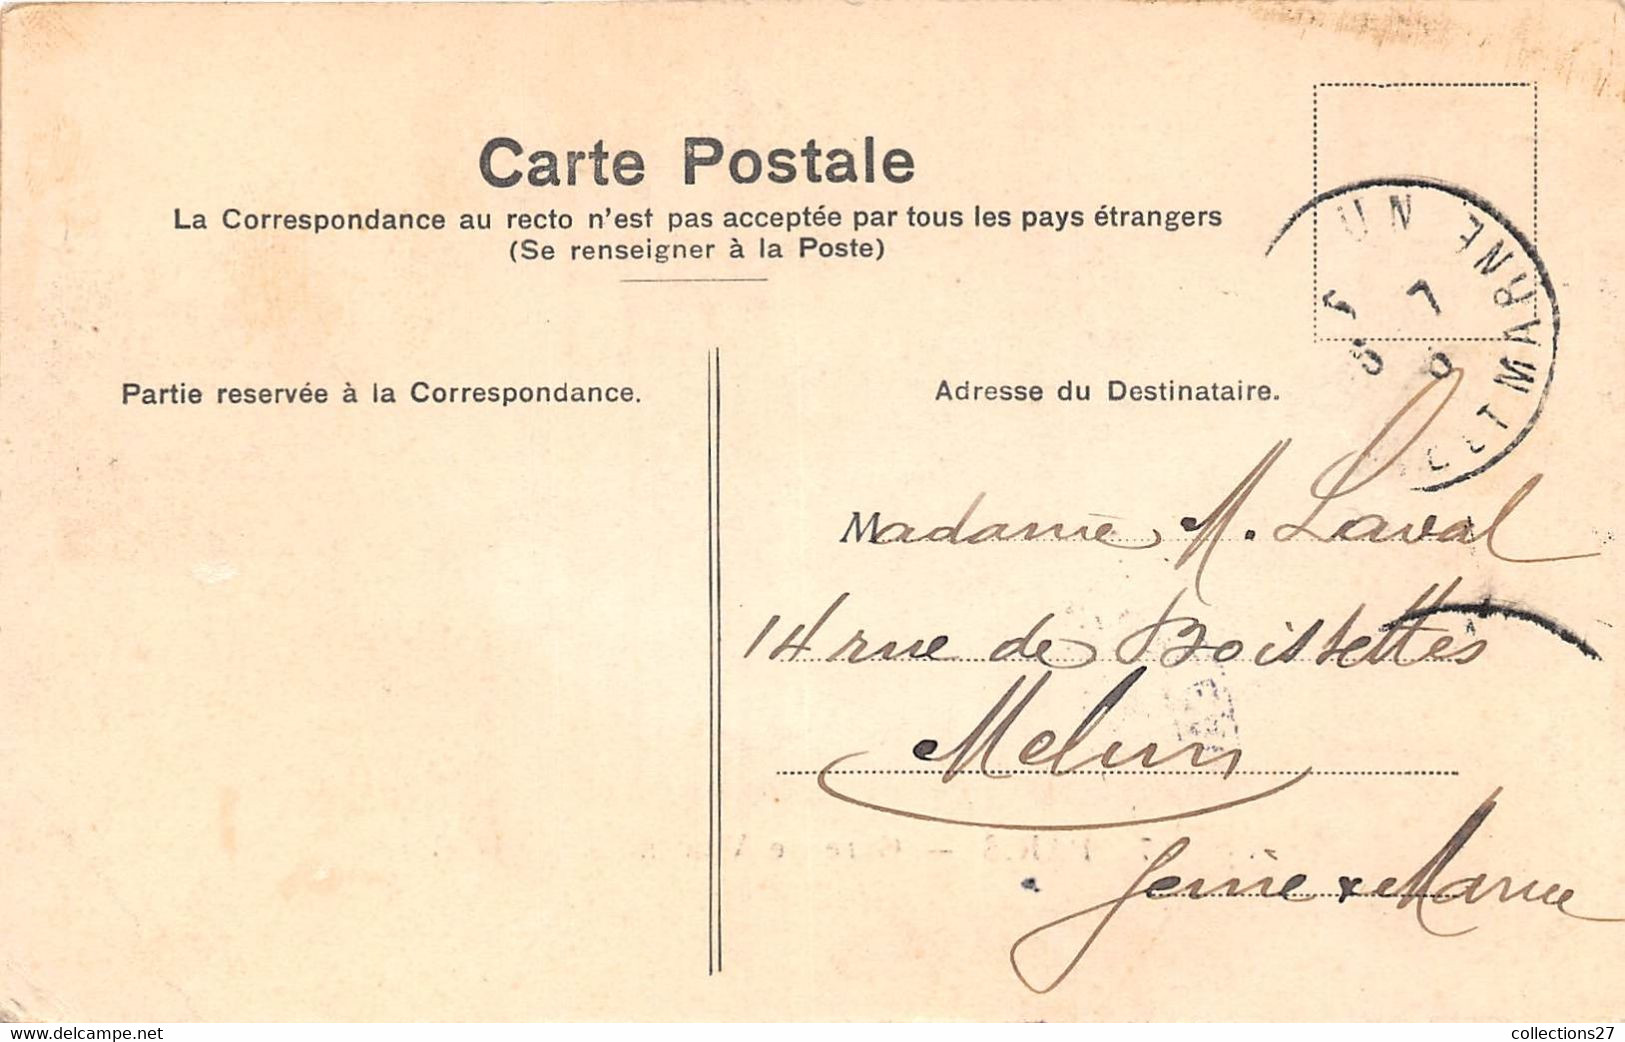 Carte Postale
La Correspondance au recto n'est pas acceptée par tous les pays étrangers
(Se renseigner à la Poste)
UN
ET MARNE
Partie reservée à la Correspondance.
Adresse du Destinataire.
Madame M. Laval
14 rue de Boissettes
Melun
Seine & Marne
collections27